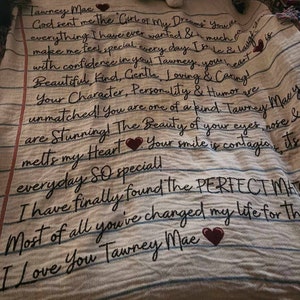 Tawney Mae ❤
God sent me the 'Girl of My Dreams' You are
everything I have ever wanted & much
make me feel special every day. I smile & laugh is
with confidence in you Tawney, your heart is
Beautiful, Kind, Gentle, Loving & Caring!
Your Character, Personality & Humor are
unmatched! You are one of a kind Tawney Mae
are Stunning! The Beauty of your eyes, nose &
melts my Heart ❤ Your smile is contagious, it's
everyday SO special!
I have finally found the PERFECT
Most of all you've changed my life for th
I Love You Tawney Mae ❤